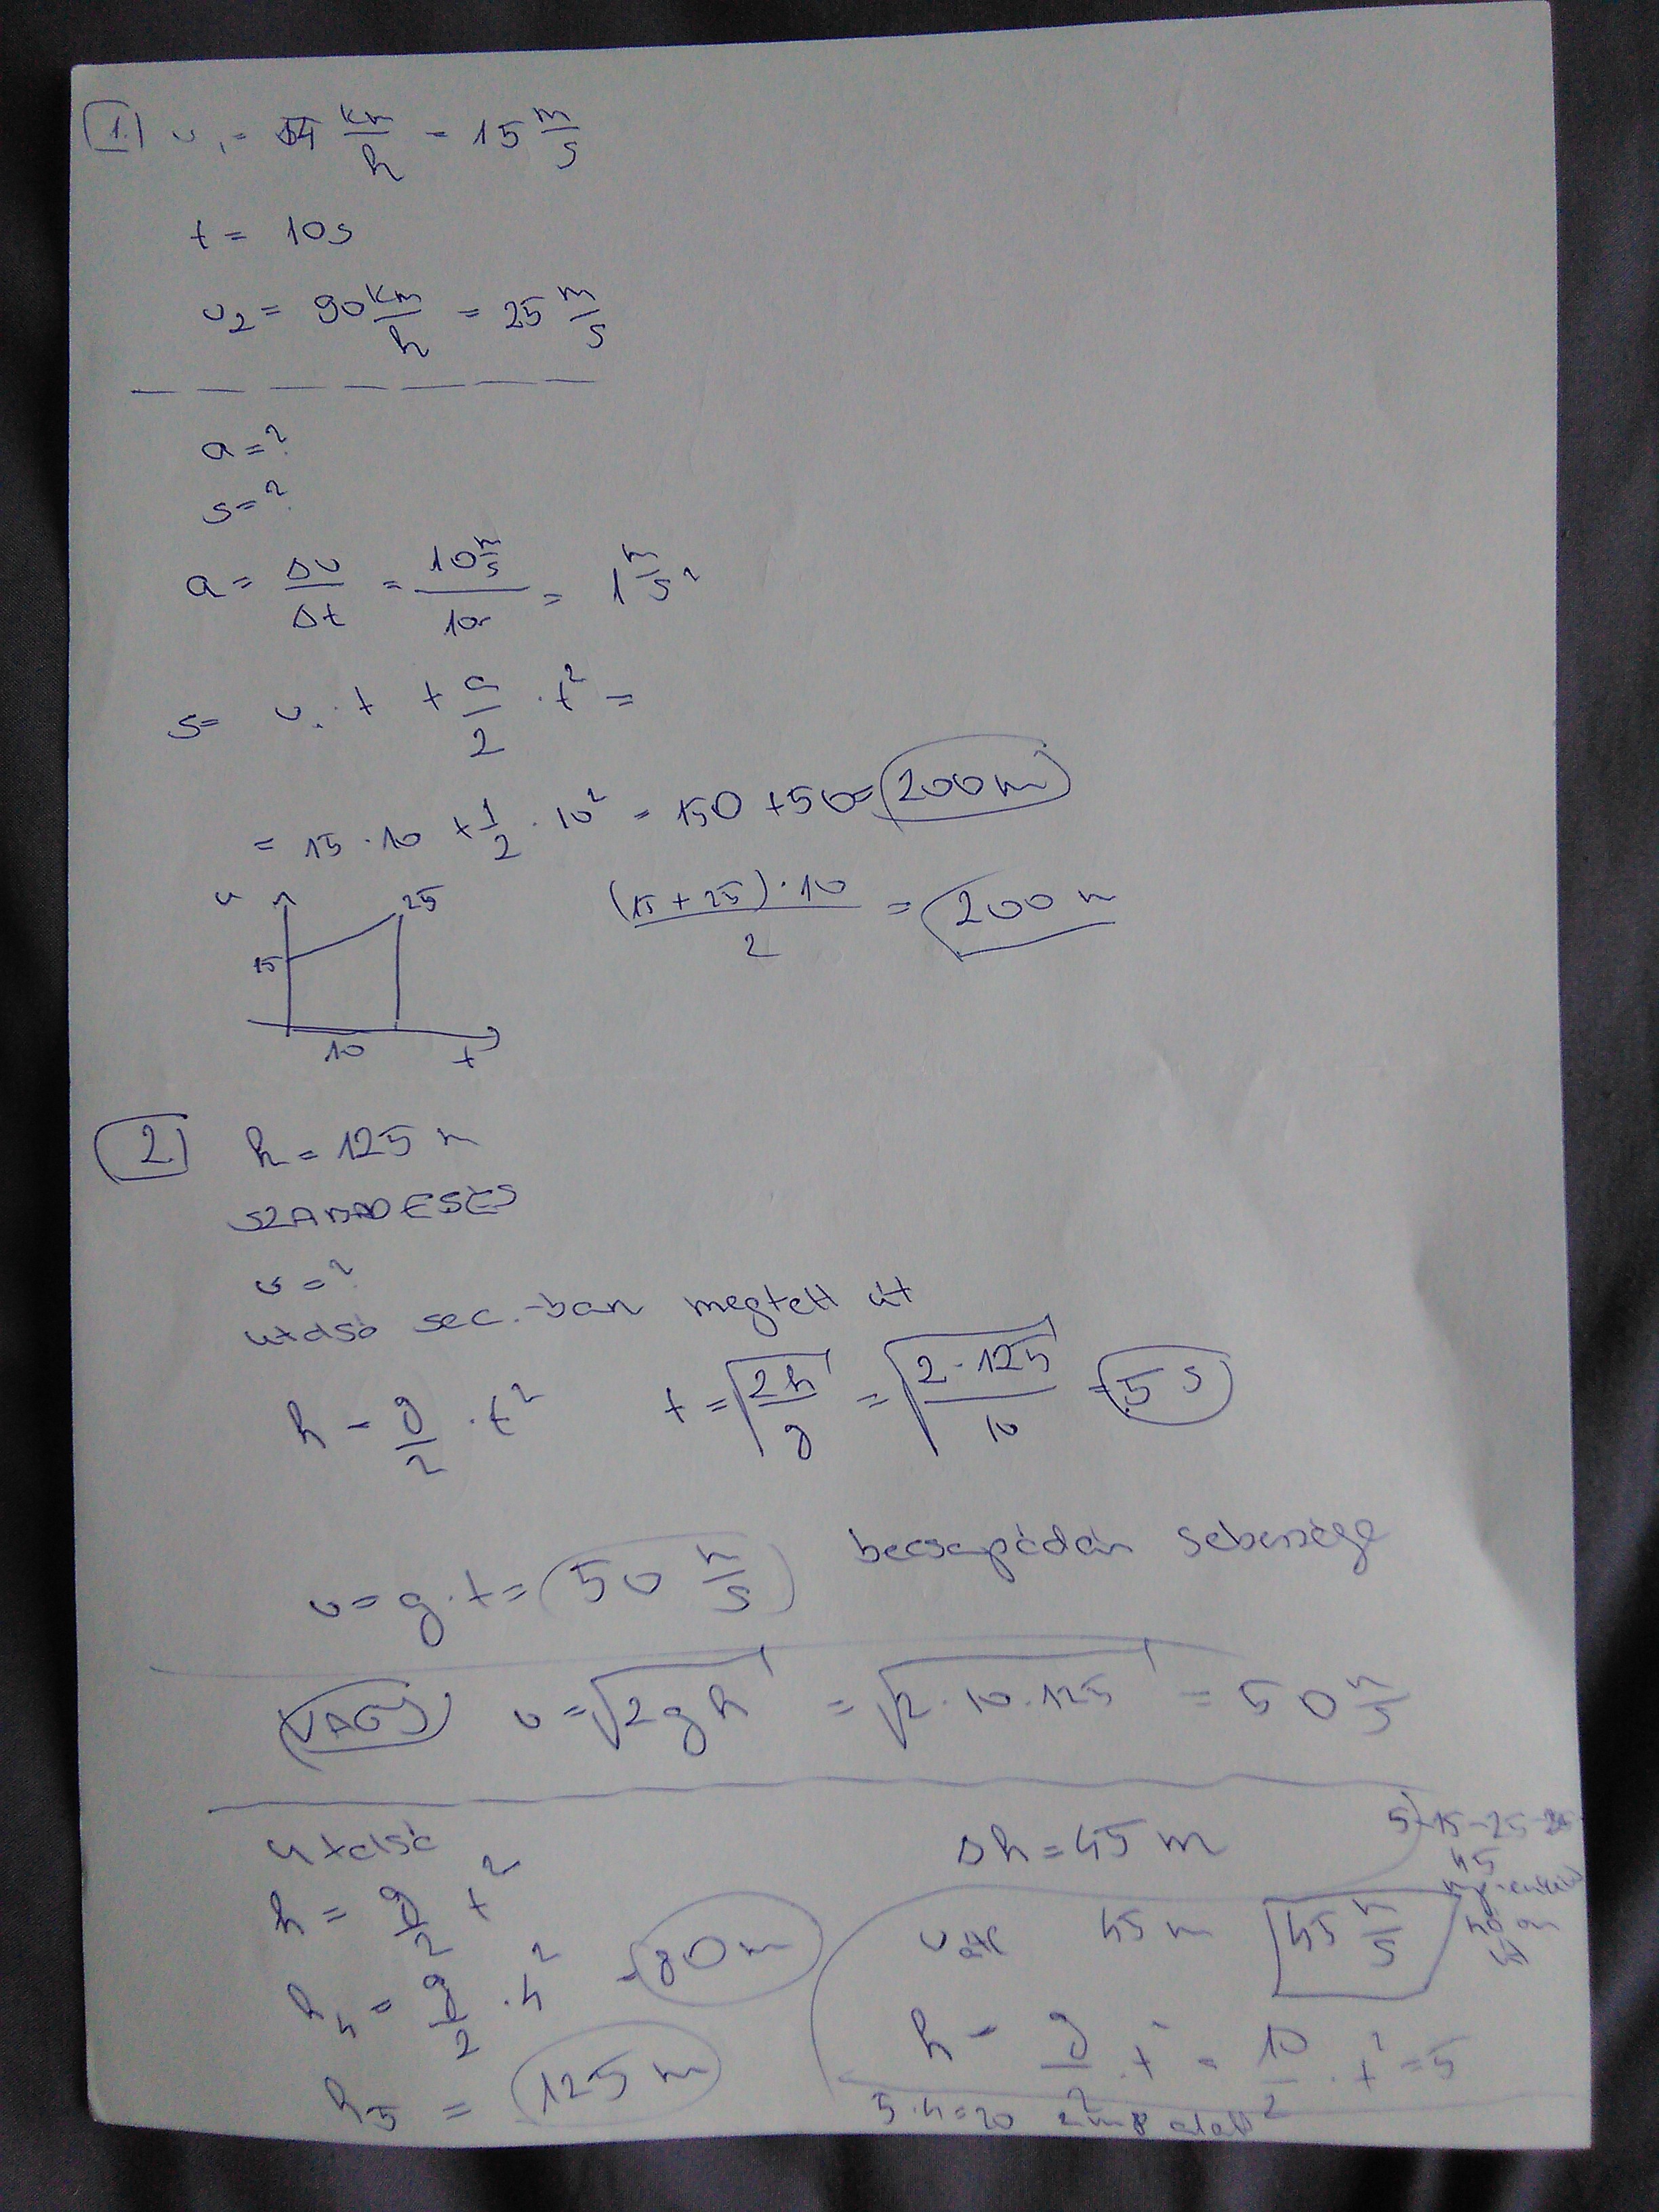 1.) v₁ = 54 km/h = 15 m/s
t = 10s
v₂ = 90 km/h = 25 m/s
a = ?
s = ?
a = Δv/Δt = 10 m/s / 10s = 1 m/s²
s = v₁ · t + a/2 · t² =
= 15 · 10 + 1/2 · 10² = 150 + 50 = 200 m
v 25
15
10 t
(15 + 25) · 10 / 2 = 200 m
2.) h = 125 m
SZABADESÉS
v = ?
utolsó sec.-ban megtett út
h = g/2 · t² t = √(2h/g) = √(2 · 125/10) = 5 s
v = g · t = 50 m/s becsapódási sebessége
VAGY v = √(2gh) = √(2 · 10 · 125) = 50 m/s
utolsó
h = g/2 t²
h₄ = g/2 · 4² = 80 m
h₅ = 125 m
Δh = 45 m
5 - 15 - 25 - 35
45
v átl 45 m 45 m/s
h = g/2 · t² = 10/2 · t² = 5
5 · 4 = 20 2 mp alatt